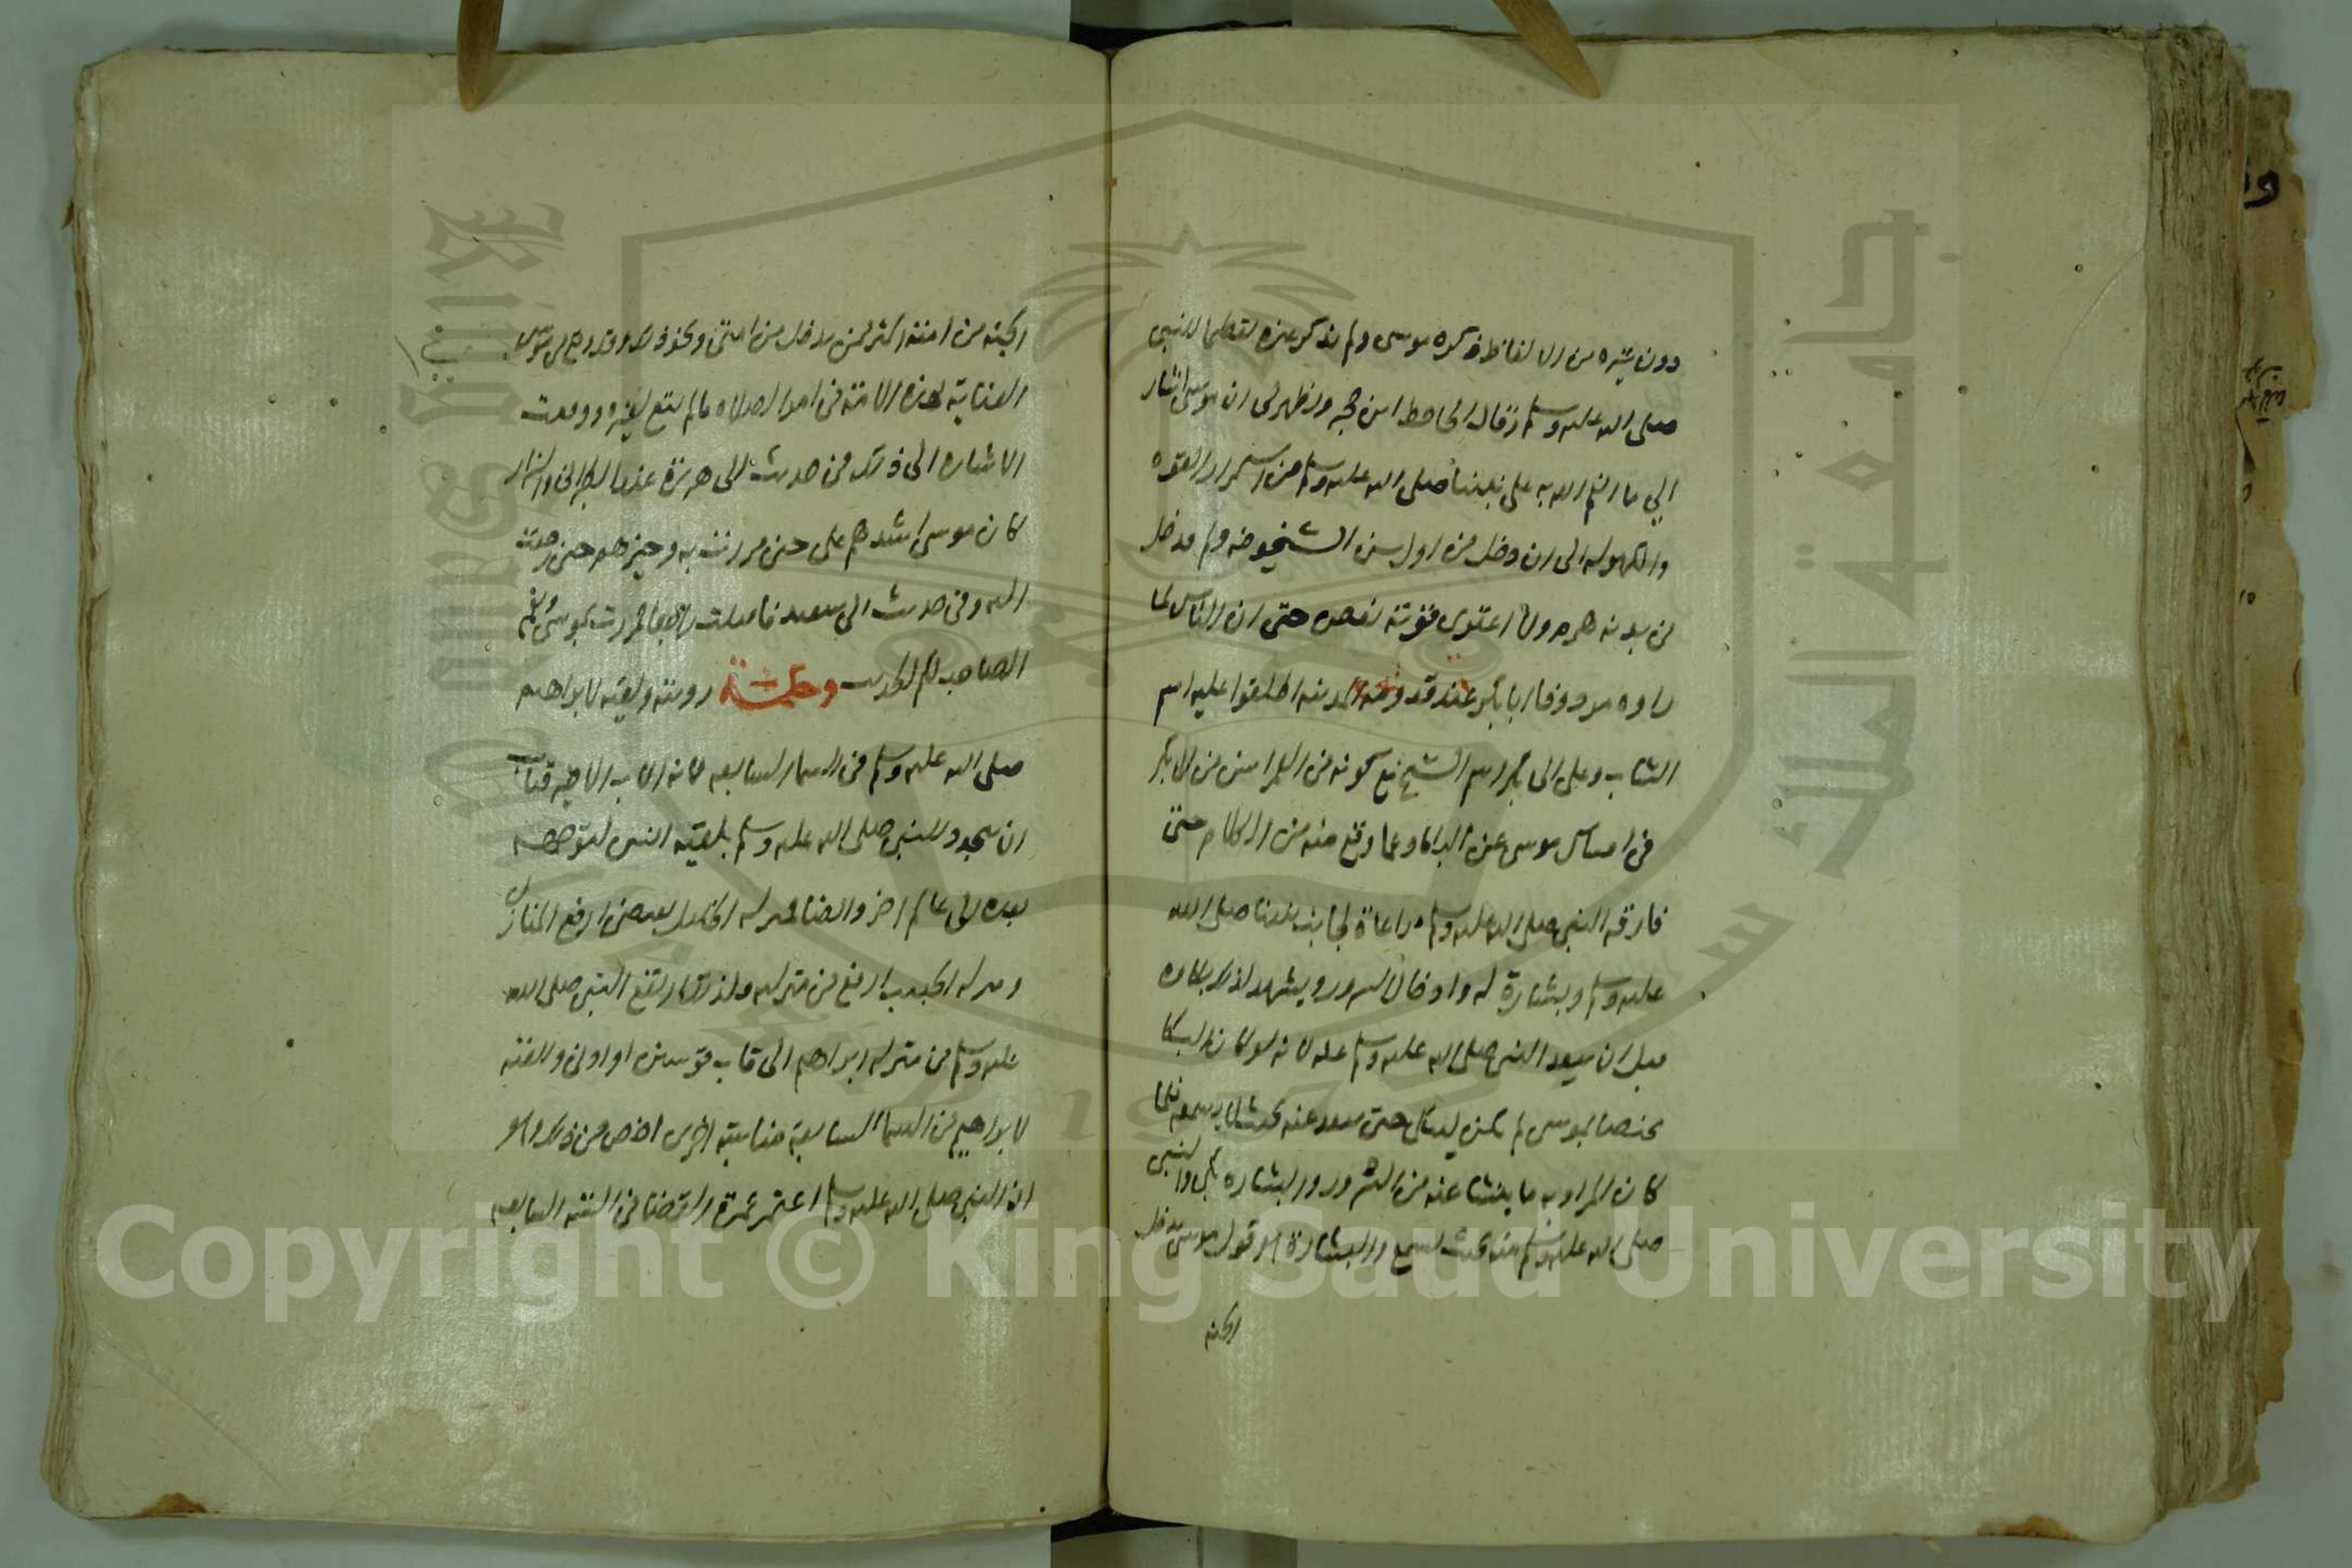 دون غيره من الالفاظ ذكره موسى ولم يذكر غيره تعظيما للنبي
صلى الله عليه وسلم وقال الحافظ ابن حجر ويظهر لى ان موسى اشار
الي ما انعم الله به على نبينا صلى الله عليه وسلم من استمرار القوه
والكهوله الى ان دخل من اول سن الشيخوخه ولم يدخل
فى بدنه هرم ولا اعترى قوته نقص حتى ان الناس لما
راوه مردفا ابا بكر عند قدومه المدينه اطلقوا عليه اسم
الشاب وعلى ابى بكر اسم الشيخ مع كونه فى العمر اسن من ابى بكر
فى امساك موسى عن البكا وعما وقع منه من الكلام حتى
فارقه النبي صلى الله عليه وسلم مراعاة لجانب نبينا صلى الله
عليه وسلم وبشارة له وادخال السرور ويشهد لذلك بكاوه
قبل ان يبعد النبى صلى الله عليه وسلم عنه لانه لو كان البكا
مختصا بموسى لم يكن ليبكى حتى يبعد عنه بحيث لا يسمعه فلما
كان المراد به ما ينشا عنه من السرور والبشاره بكى والنبي
صلى الله عليه وسلم منه بحيث يسمع والبشارة هو قول موسى يدخل
الجنه
الجنه من امته اكثر ممن يدخل من امتى ونحو ذلك وقد وقع من موسى
العناية بهذه الامة فى امر الصلاه ما لم يقع لغيره ووقعت
الاشاره الى ذلك فى حديث ابى هريرة عند الطبرانى والبزار
كان موسى اشدهم على حين مررت به وخيرهم حين رجعت
اليه وفى حديث ابى سعيد فاقبلت راجعا فمررت بموسى ونعم
الصاحب لكم الحديث وحكمة رويته ولقيه لابراهيم
صلى الله عليه وسلم فى السماء السابعه لانه الاب الاخير فناسب
ان يتجدد للنبي صلى الله عليه وسلم بلقيه انس لتوجهه
بعده الى عالم اخر وايضا فمنزله الخليل تقتضى ارفع المنازل
ومنزله الحبيب ارفع من منزلته ولذلك ارتفع النبى صلى الله
عليه وسلم من منزله ابراهيم الى قاب قوسين او ادنى وللقيه
لابراهيم فى السماء السابعة مناسبة اخرى اخص من ذلك وهو
ان النبى صلى الله عليه وسلم اعتمر عمرة القضا فى السنه السابعه
جامعة الملك سعود
King Saud University
1957
Copyright © King Saud University